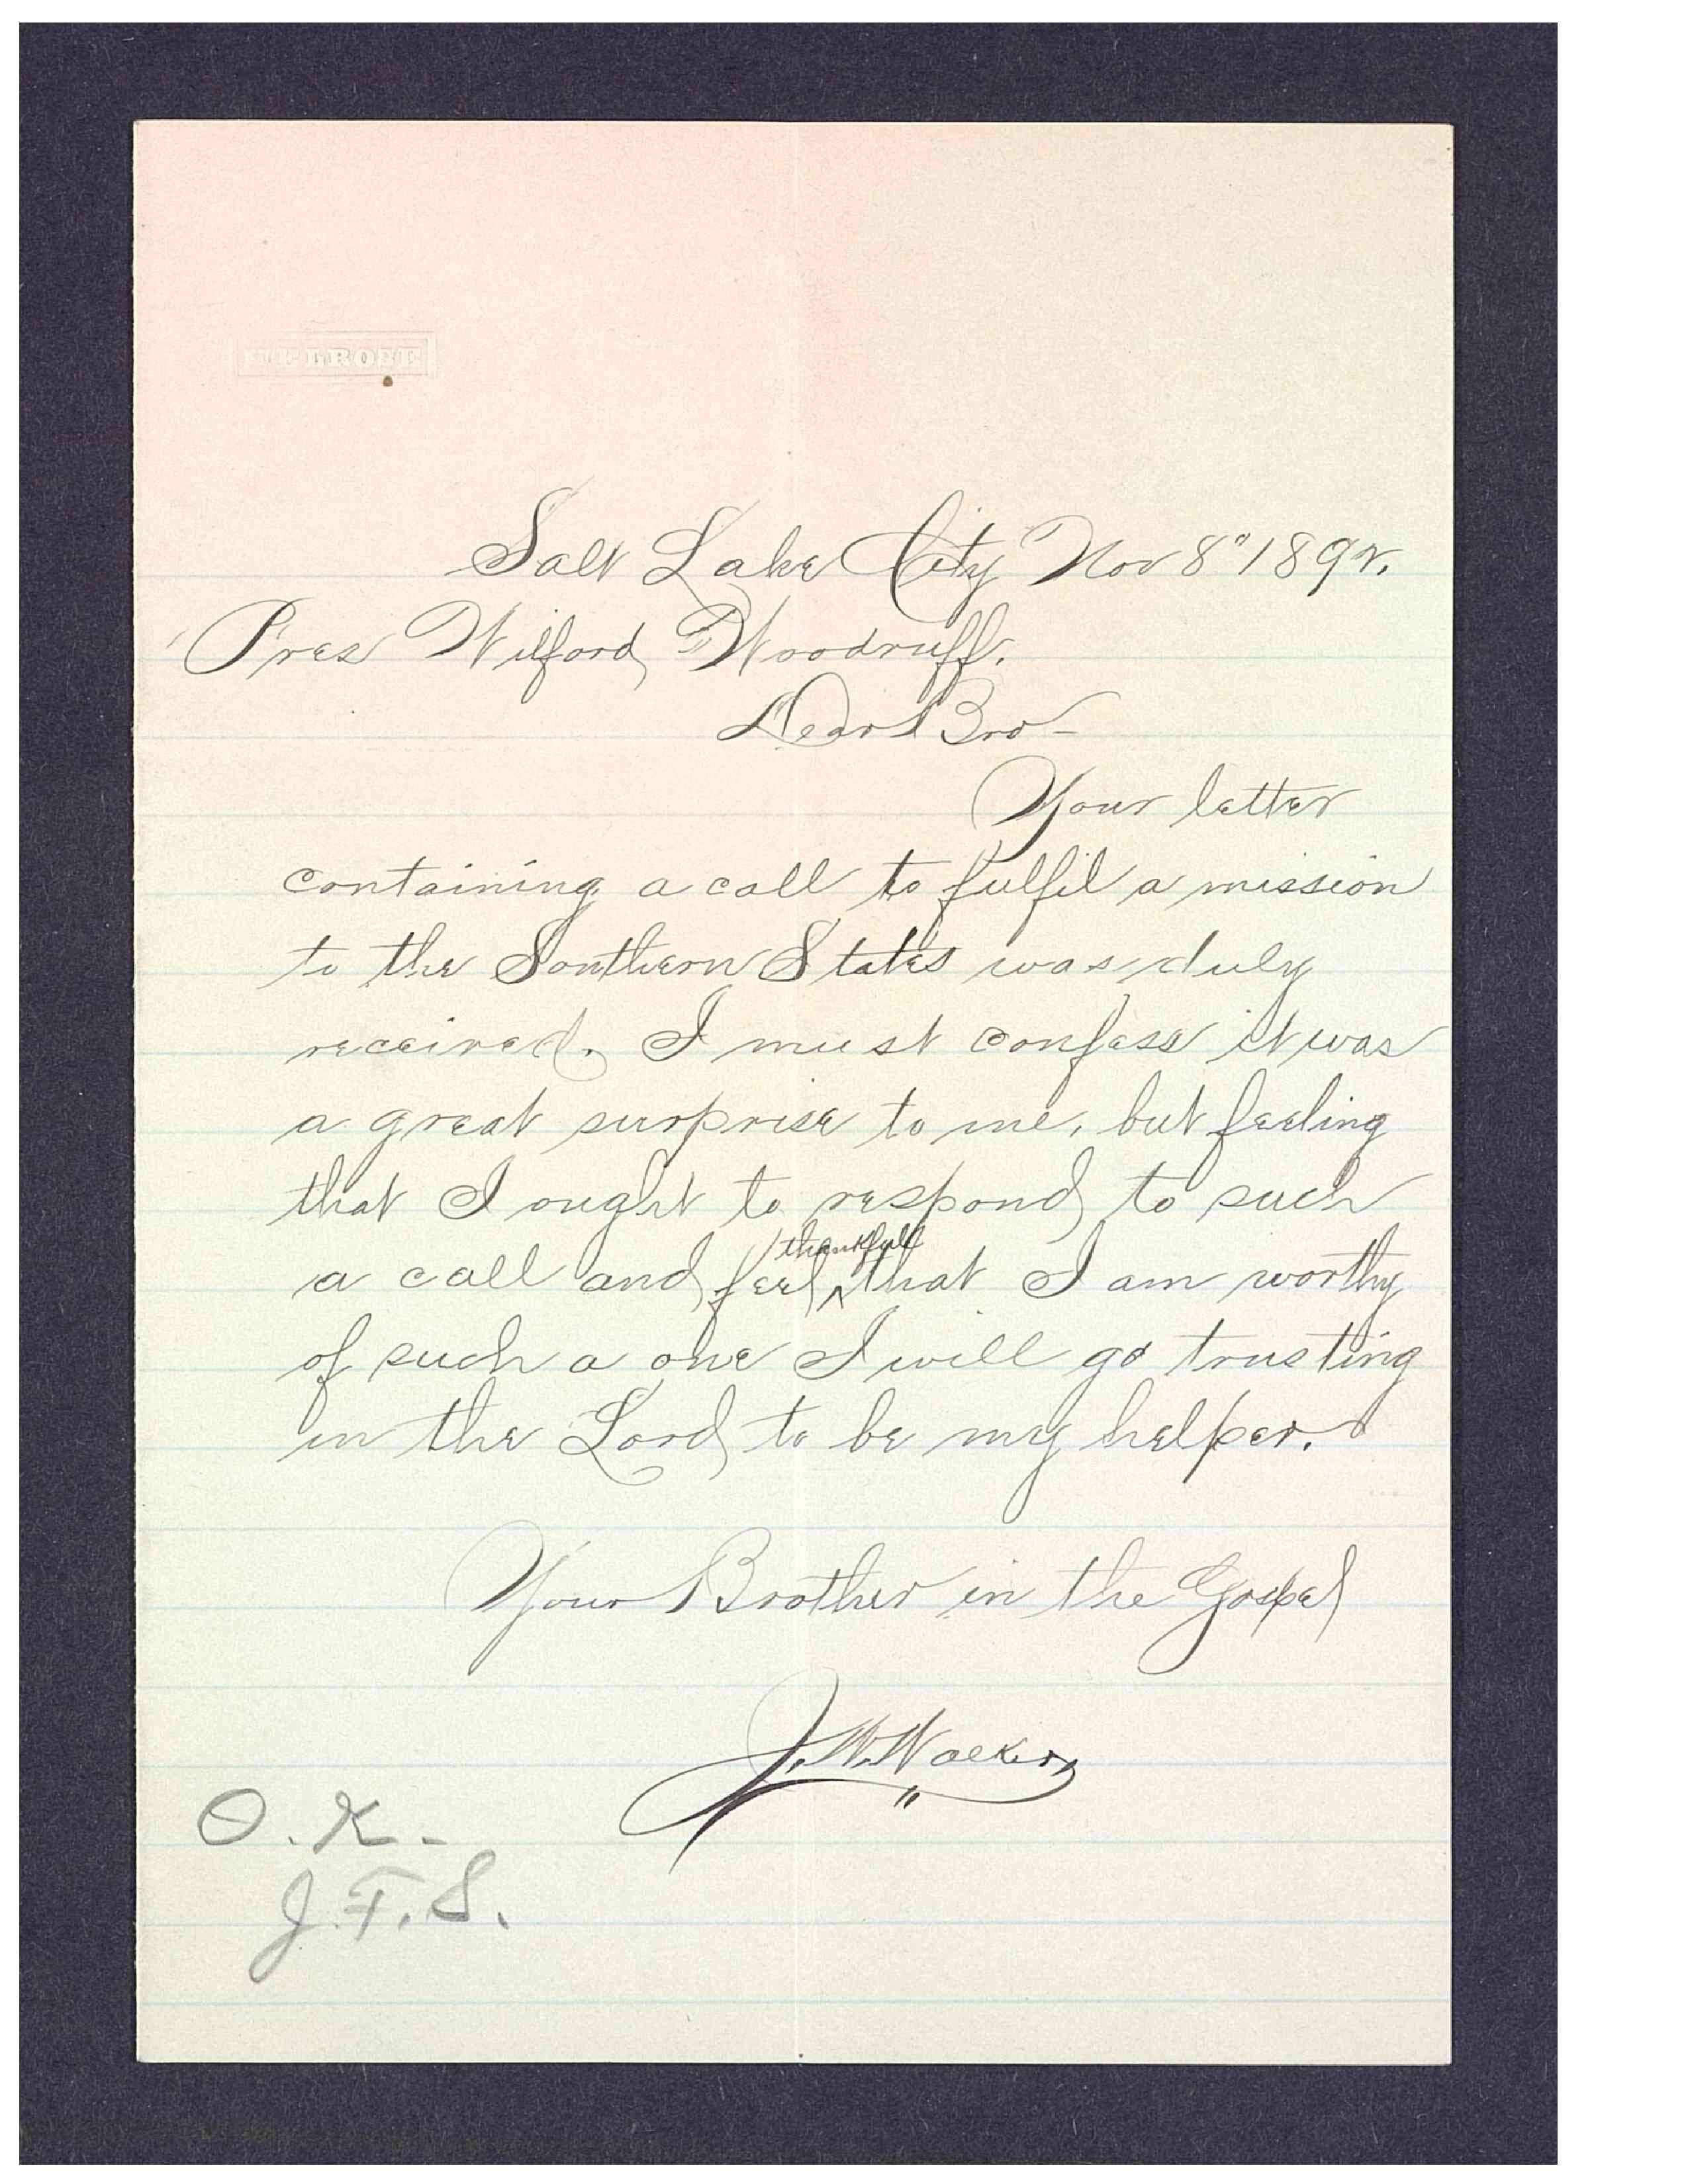 Salt Lake City Nov 8" 1892.
Pres Wilford Woodruff.
Dear Bro-
Your letter
containing a call to fulfil a mission
to the Southern States was duly
received. I must confess it was
a great surprise to me, but feeling
that I ought to respond to such
thankfull
a call and feel ^ that I am worthy
of such a one I will go trusting
in the Lord to be my helper.
Your Brother in the Gospel
J. W. Walker
O. K. -
J. F. S.